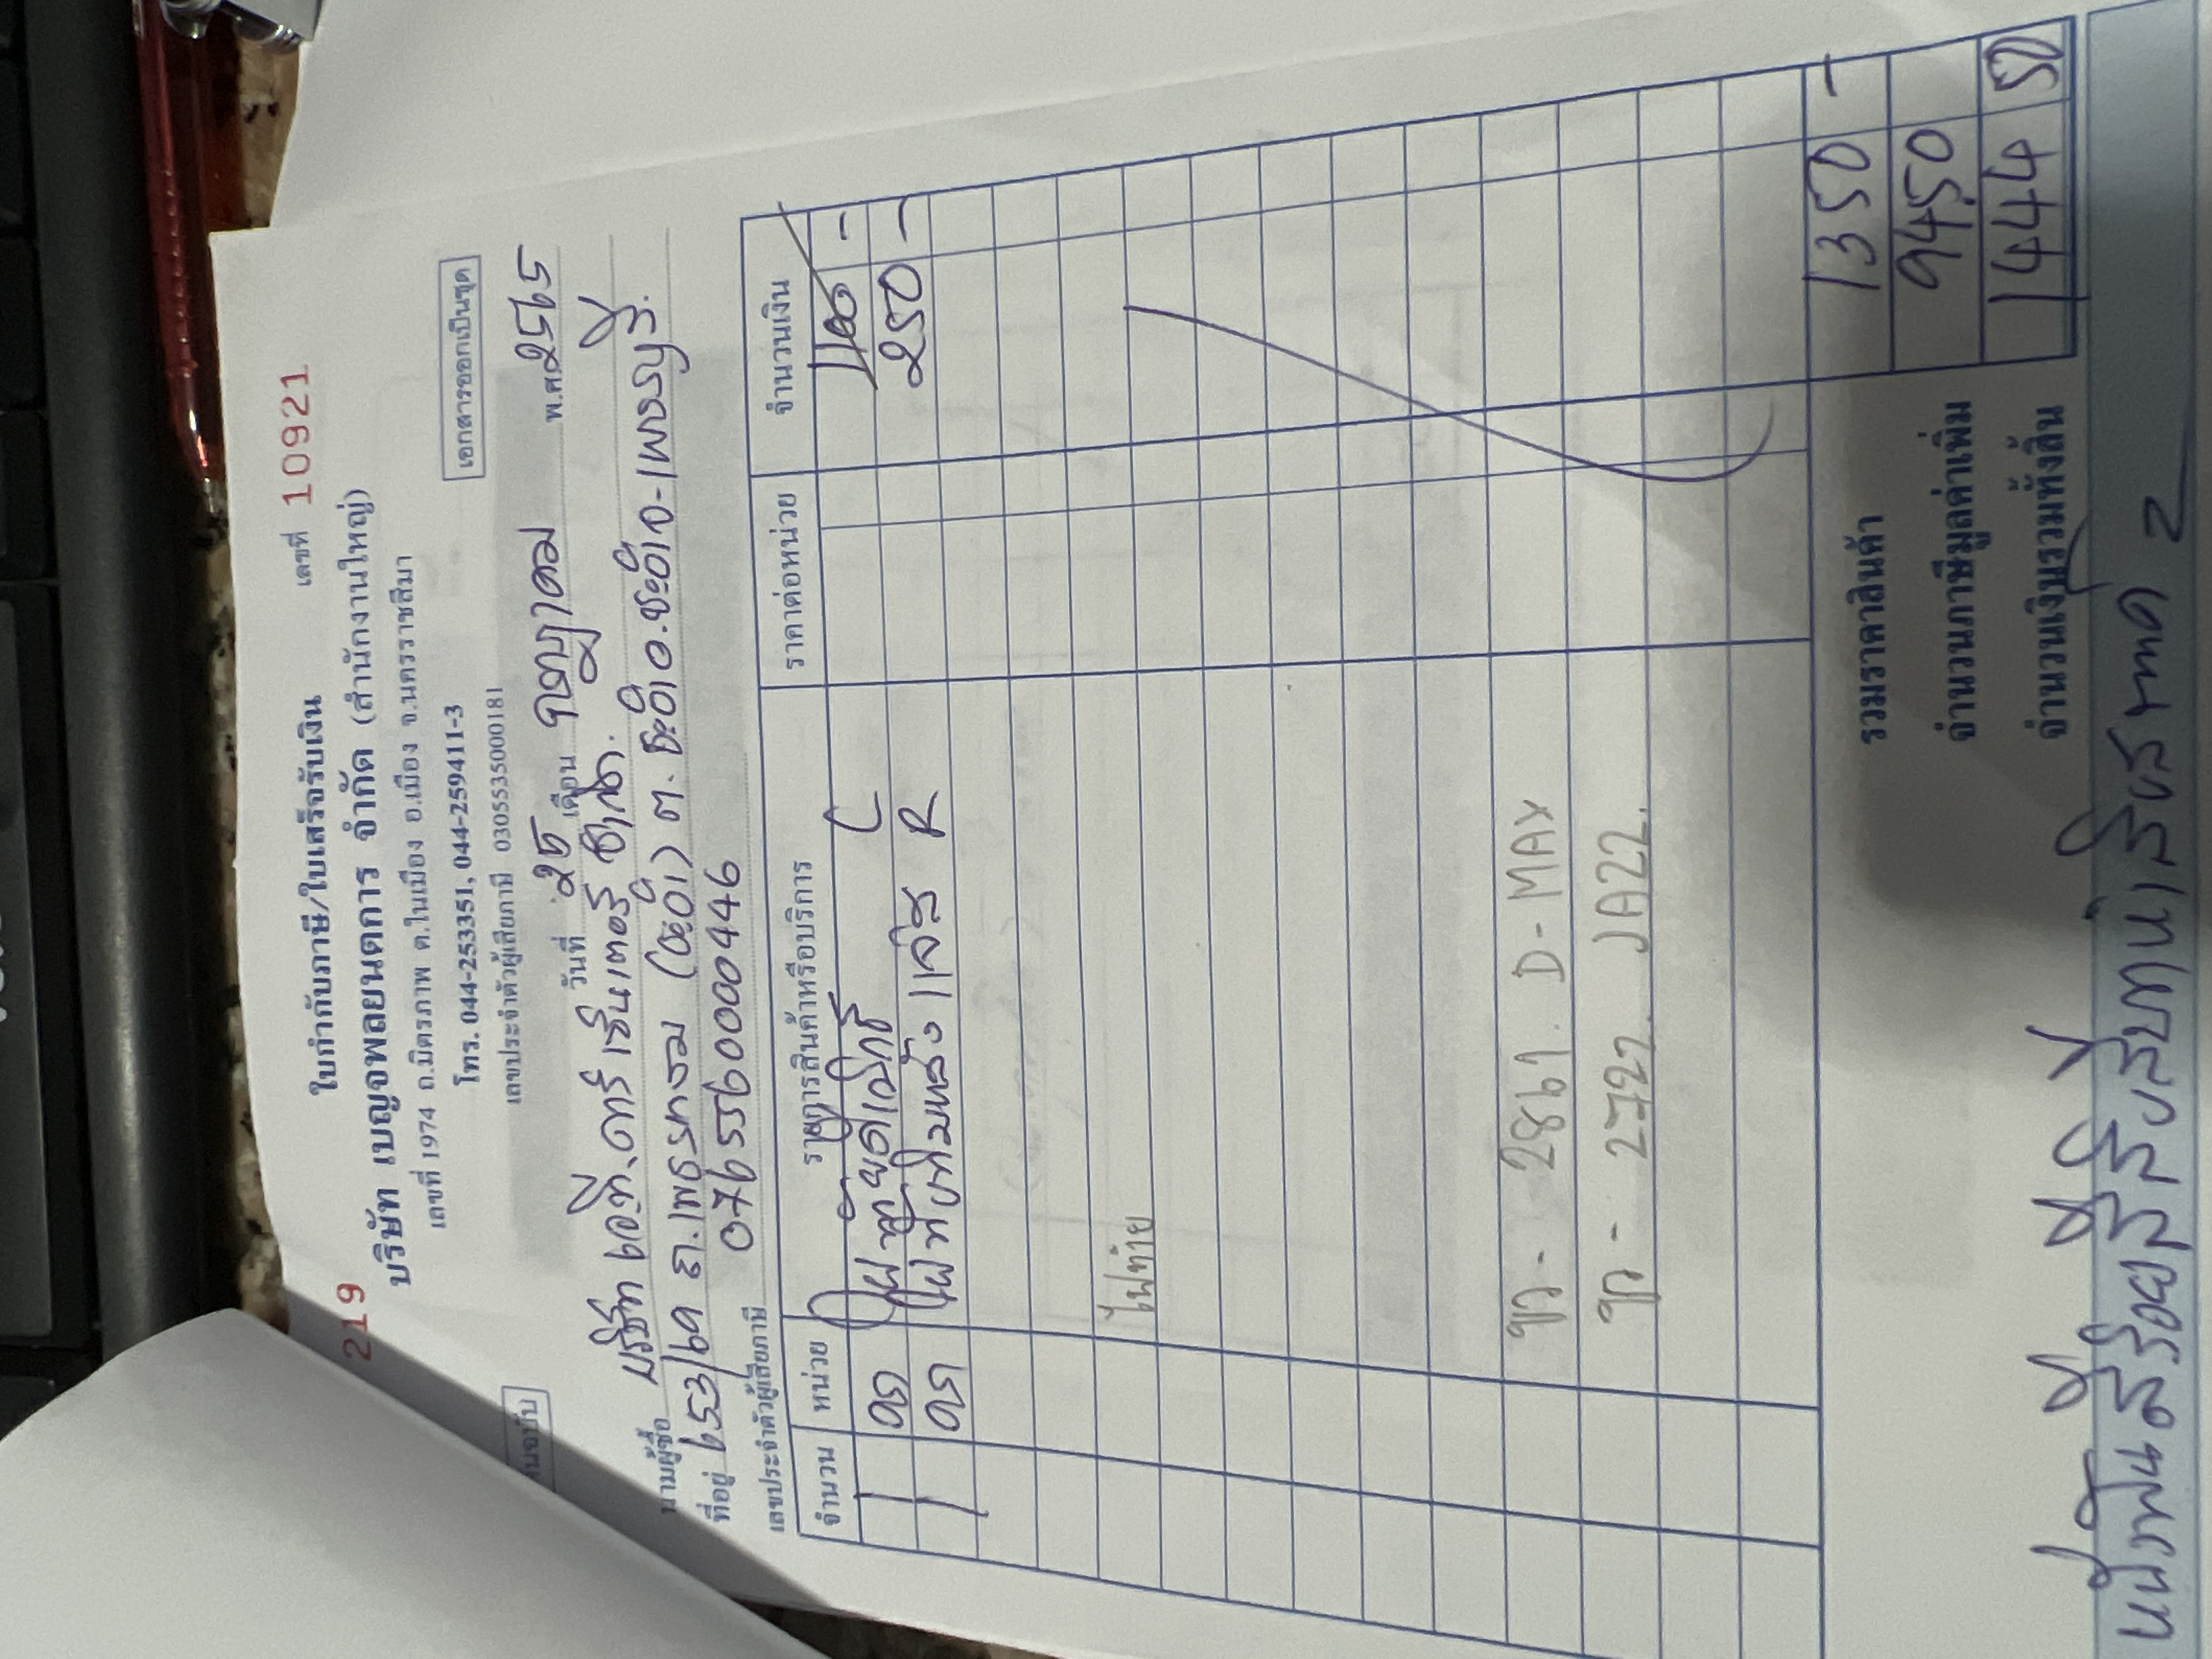 เลขที่ 10921
219
ใบกำกับภาษี/ใบเสร็จรับเงิน
บริษัท เบญจพลยนตการ จำกัด (สำนักงานใหญ่)
เลขที่ 1974 ถ.มิตรภาพ ต.ในเมือง อ.เมือง จ.นครราชสีมา
โทร. 044-253351, 044-259411-3
เลขประจำตัวผู้เสียภาษี 0305535000181
เอกสารออกเป็นชุด
วันที่ 25 เดือน กรกฎาคม พ.ศ. 2565
นามผู้ซื้อ บริษัท เอ.ที.คาร์ เซ็นเตอร์
ที่อยู่ 653/69 ถ.เพชรเกษม (ชะอำ) ต.ชะอำ อ.ชะอำ จ.เพชรบุรี
เลขประจำตัวผู้เสียภาษี 0765560000446
จำนวน หน่วย รายการสินค้าหรือบริการ ราคาต่อหน่วย จำนวนเงิน
1 ดวง L 1100 -
1 ดวง R 250 -
ไฟท้าย
2867. D-MAX
2727. JAZZ.
รวมราคาสินค้า 1350 -
จำนวนภาษีมูลค่าเพิ่ม 94.50
จำนวนเงินรวมทั้งสิ้น 1444 50
หนึ่งพันสี่ร้อยสี่สิบสี่บาทห้าสิบสตางค์